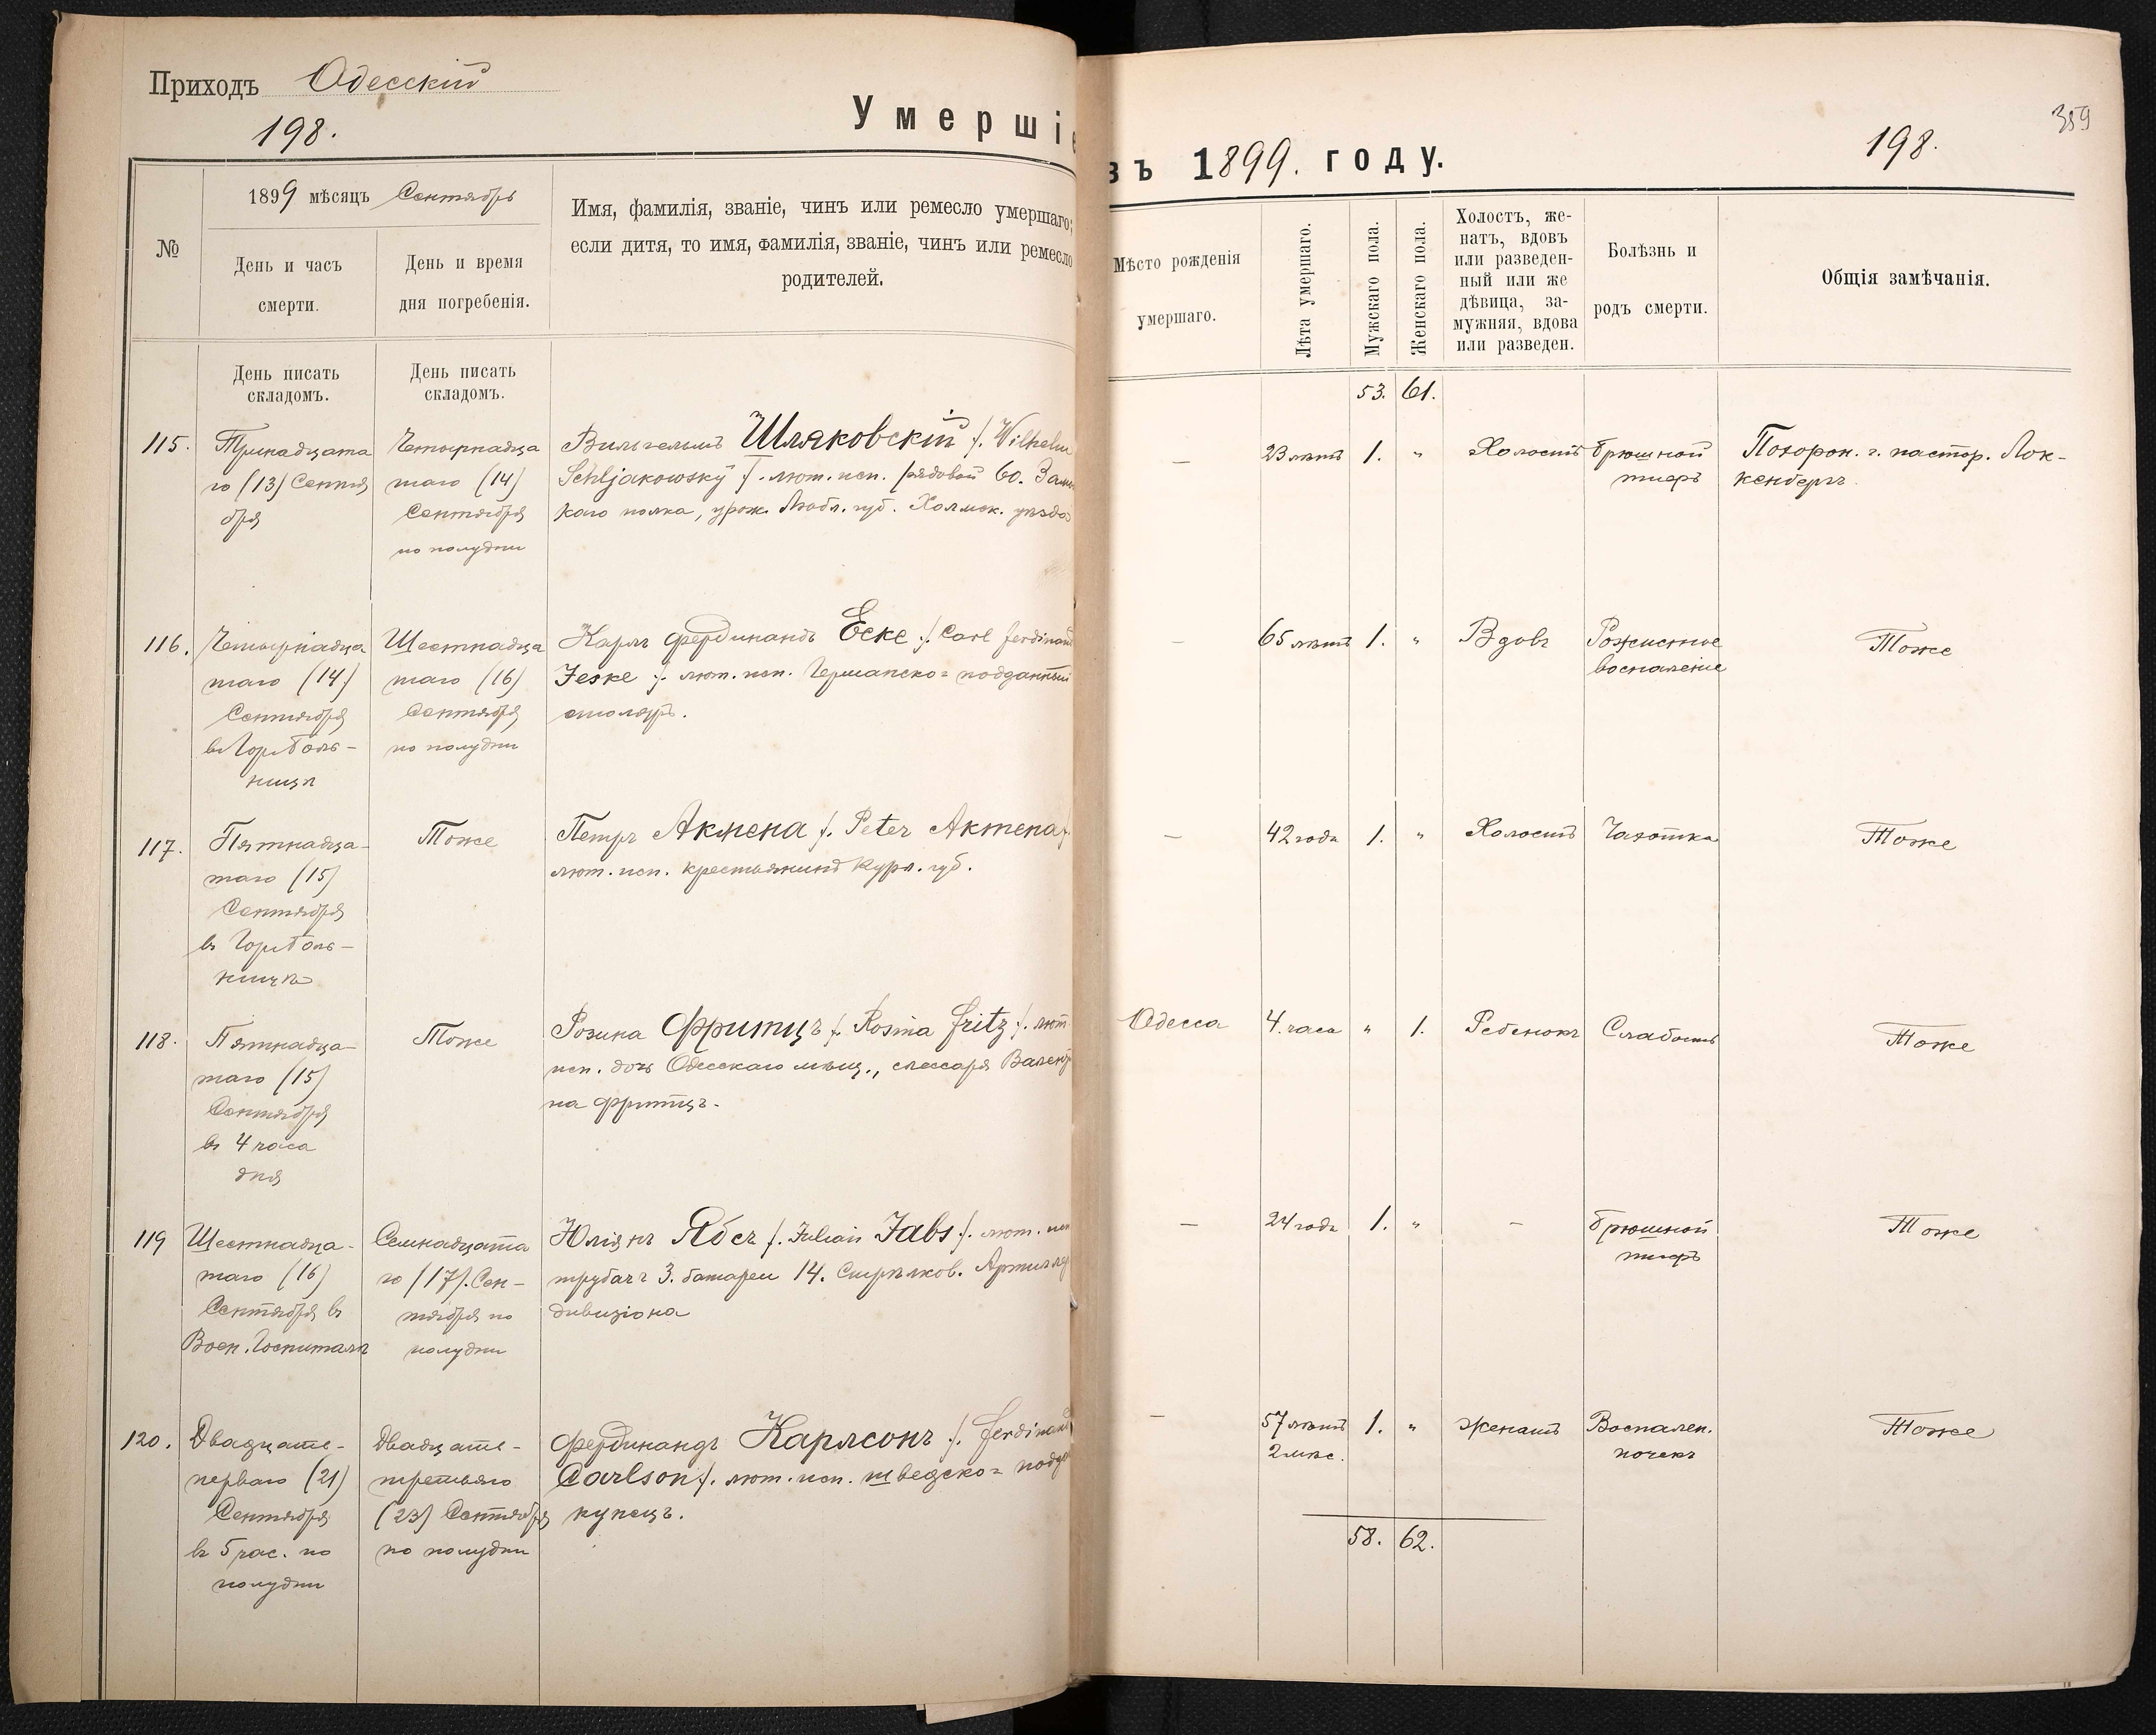 Приходъ Одесскій
198.
Умершіе
въ 1899. году.
198.
359
№
1899 мѣсяцъ Сентябрь
День и часъ
смерти.
День и время
дня погребенія.
Имя, фамилія, званіе, чинъ или ремесло умершаго;
если дитя, то имя, фамилія, званіе, чинъ или ремесло
родителей.
Мѣсто рожденія
умершаго.
Лѣта умершаго.
Мужскаго пола.
Женскаго пола.
Холостъ, же-
натъ, вдовъ
или разведен-
ный или же
дѣвица, за-
мужняя, вдова
или разведен.
Болѣзнь и
родъ смерти.
Общія замѣчанія.
День писать
складомъ.
День писать
складомъ.
53. 61.
115.
Тринадцата
го (13) Сентя
бря
Четырнадца
таго (14)
Сентября
по полудни
Вильгельмъ Шляковскій /. Wilhelm
Schljakowsky /. лют. исп. рядовой 60. Замс
каго полка, урож. Любл. губ. Холмск. уѣзда
—
23 лѣтъ
1.
"
Холостъ
брюшной
тифъ
Похорон. г. пастор. Лок-
кенбергъ.
116.
Четырнадца
таго (14)
Сентября
въ Гор. боль-
ницѣ
Шестнадца
таго (16)
Сентября
по полудни
Карлъ Фердинандъ Еске /. Carl Ferdinand
Jeske /. лют. исп. Германско-подданный
столяръ.
—
65 лѣтъ
1.
"
Вдовъ
Рожистое
воспаленіе
Тоже
117.
Пятнадца-
таго (15)
Сентября
въ Гор. боль-
ницѣ
Тоже
Петръ Акмена /. Peter Akmena /.
лют. исп. крестьянинъ Курл. губ.
—
42 года
1.
"
Холостъ
Чахотка
Тоже
118.
Пятнадца-
таго (15)
Сентября
въ 4 часа
дня
Тоже
Розина Фритцъ /. Rosina Fritz /. лют.
исп. дочь Одесскаго мѣщ., слесаря Валент
на Фритцъ.
Одесса
4. часа
"
1.
Ребенокъ
Слабость
Тоже
119
Шестнадца-
таго (16)
Сентября въ
Воен. Госпиталѣ
Семнадцата
го (17). Сен-
тября по
полудни
Юліянъ Ябсъ /. Julian Jabs /. лют. исп
трубачъ 3. батареи 14. Стрѣлков. Артилле
дивизіона
—
24 года
1.
"
—
брюшной
тифъ
Тоже
120.
Двадцать-
перваго (21)
Сентября
въ 5 час. по
полудни
Двадцать-
третьяго
(23) Сентября
по полудни
Фердинандъ Карлсонъ /. Ferdinand
Carlson /. лют. исп. шведско-подд
купецъ.
—
57 лѣтъ
2 мѣс.
1.
"
Женатъ
Воспален.
почекъ
Тоже
58. 62.